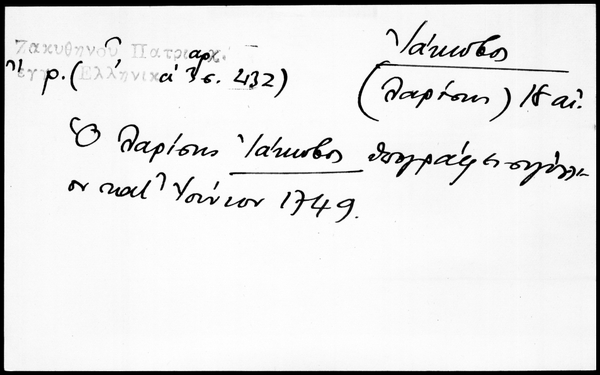 Ζακυθηνοῦ Πατριαρχ.
ἔγγρ. (Ἑλληνικά 3 σ. 432)
Ἰάκωβος
(Λαρίσης) 18 αἰ.
Ὁ Λαρίσης Ἰάκωβος ὑπογράφει σιγίλλι-
ον κατ' Ἰούνιον 1749.